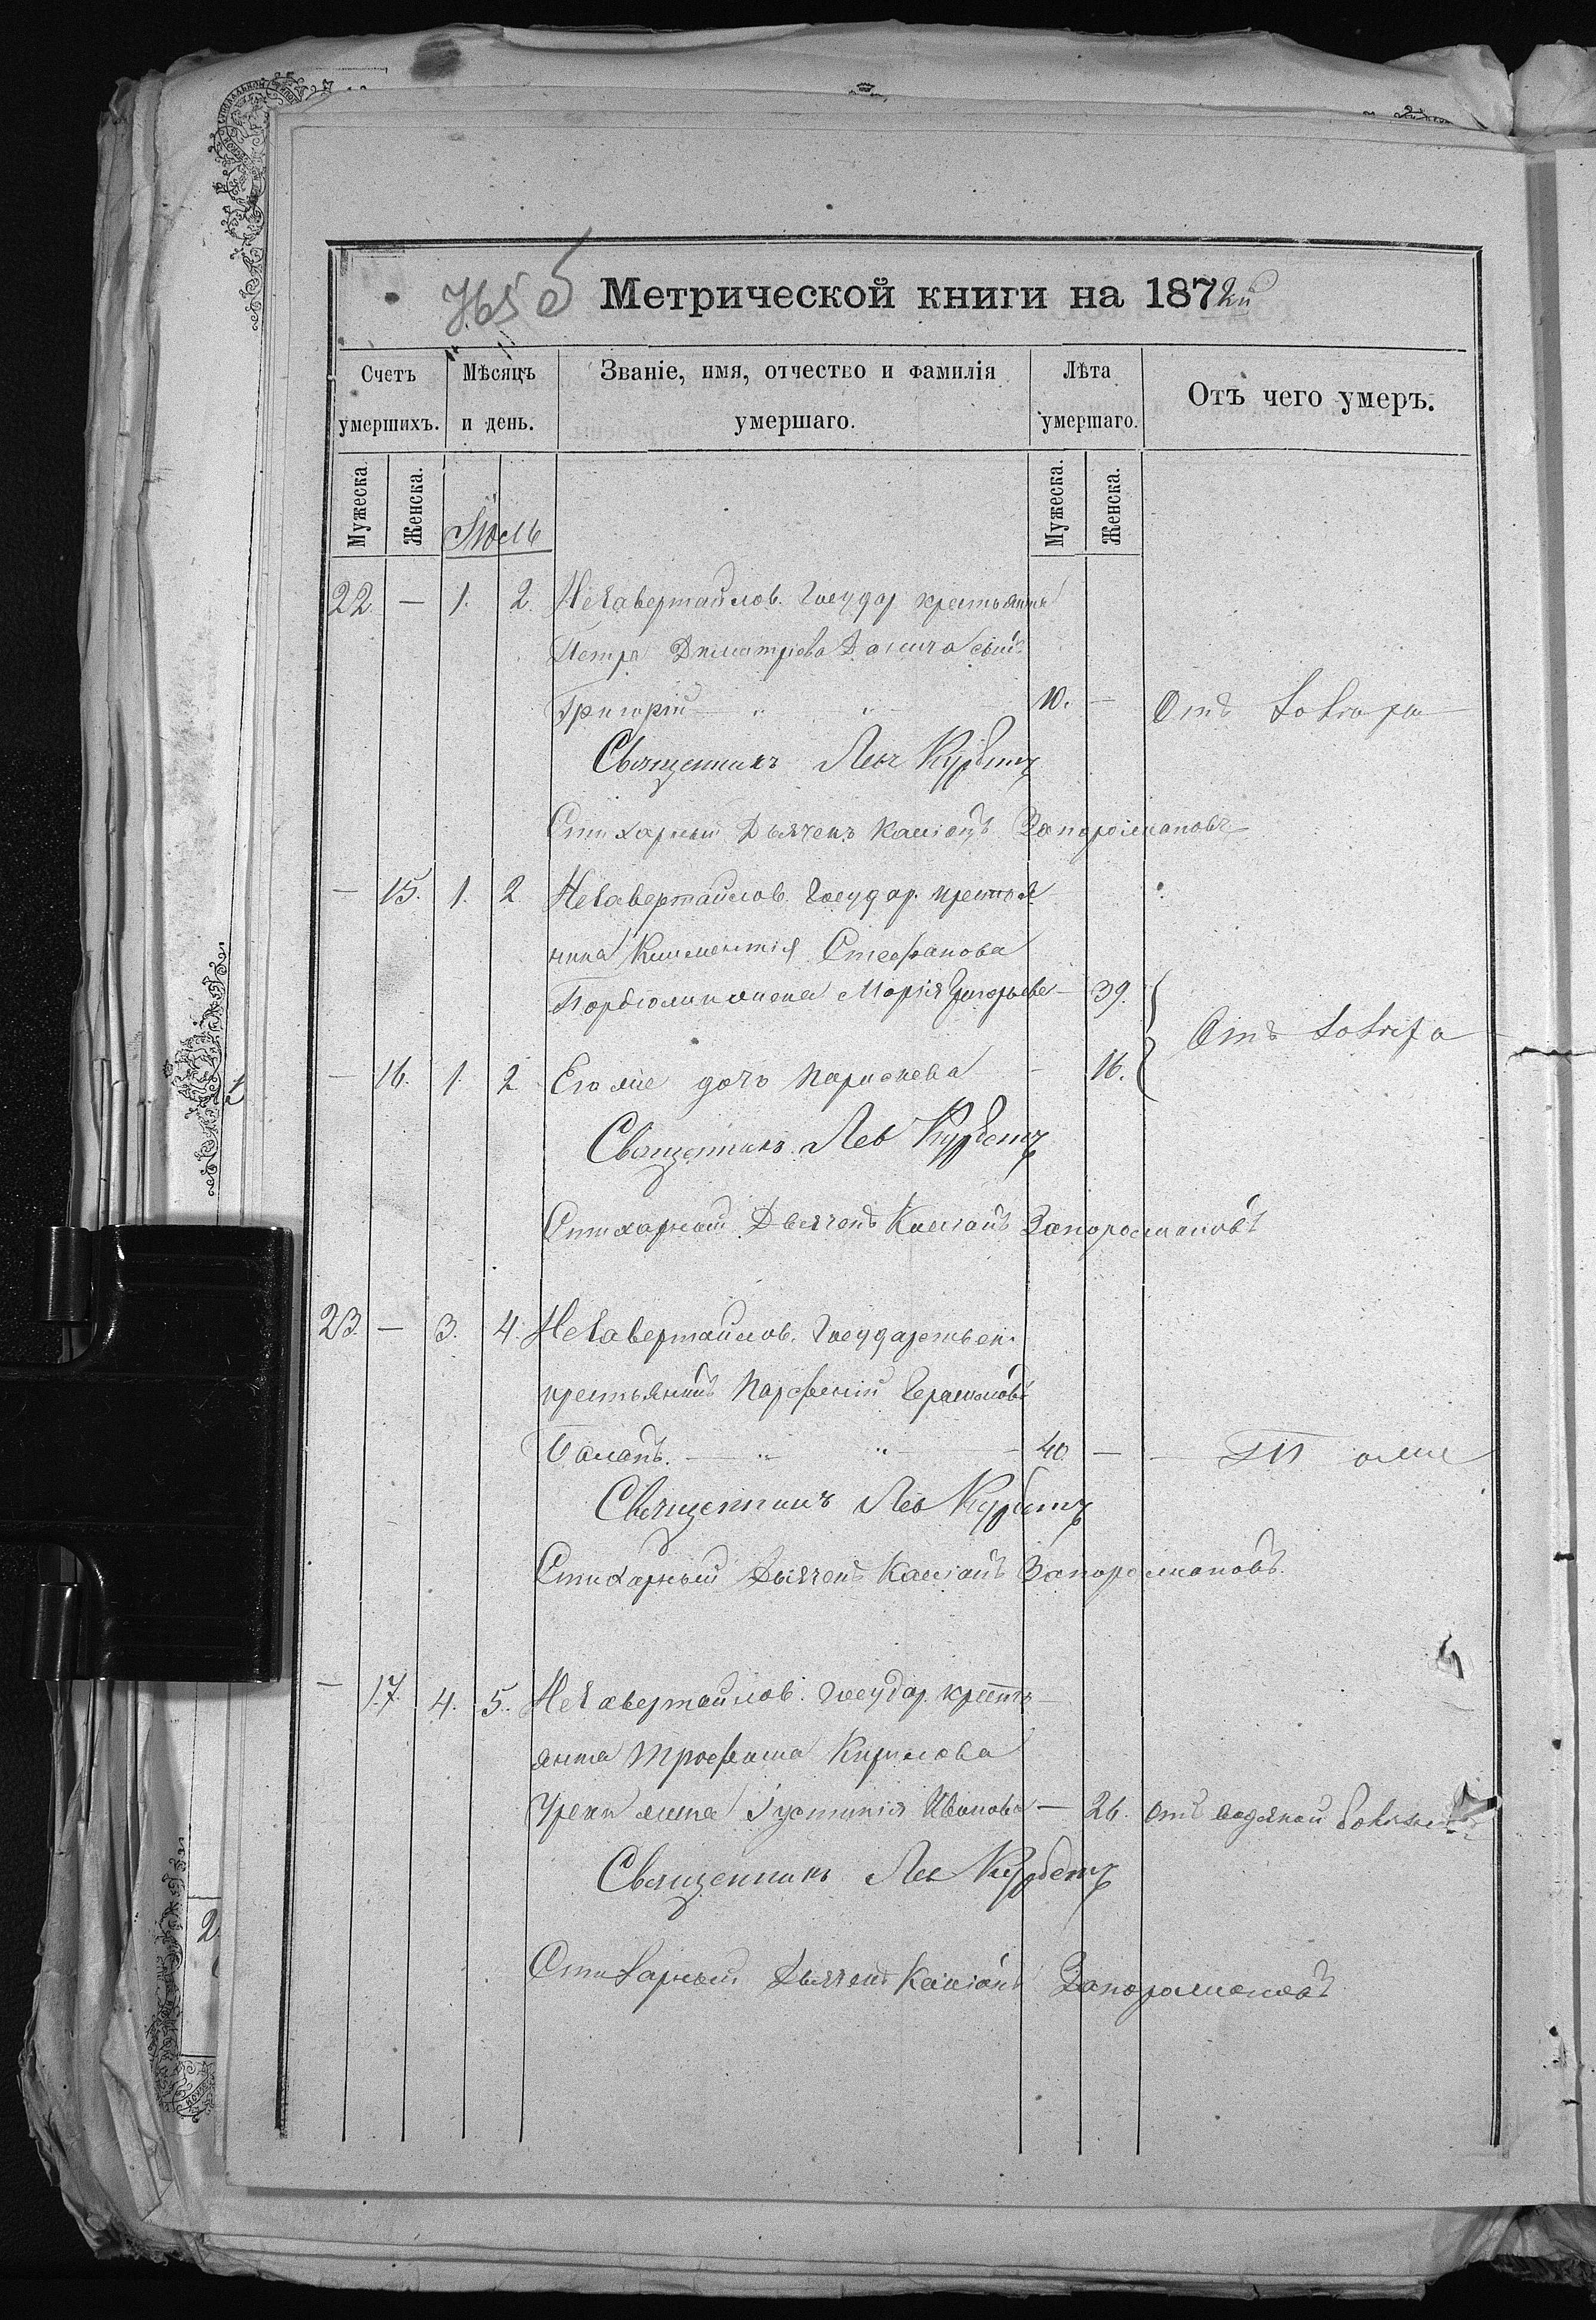 765 об Метрической книги на 1872й
Счетъ умершихъ. Мѣсяцъ и день. Званіе, имя, отчество и фамилія умершаго. Лѣта умершаго. Отъ чего умеръ.
Мужеска. Женска. Іюль Мужеска. Женска.
22. — 1. 2. Незавертайлов. Государ крестьянина
Петра Димитріева сынъ
Григорій — " " — 10. — Отъ холеры
Священникъ Лев Курбетъ
Стихарный Дьячекъ Касіанъ Запорожановъ
— 15. 1. 2. Незавертайлов. Государ. крестья
нина Климентія Стефанова
Марія Григорьева — 39.
Отъ холеры
— 16. 1. 2 Его же дочь Параскева — 16.
Священникъ Лев Курбетъ
Стихарный Дьячекъ Касіанъ Запорожановъ
23. — 3. 4. Незавертайлов. Государствен.
крестьянинъ Парфеній Герасимовъ
Баланъ. — " " — 40 — — Т о же
Священникъ Лев Курбетъ
Стихарный Дьячекъ Касіанъ Запорожановъ.
— 17. 4. 5. Незавертайлов. Государ. кресть
янина Трофима Кирилова
жена Іустинія Иванова — 26. Отъ водяной болѣзни
Священникъ Лев Курбетъ
Стихарный Дьячекъ Касіанъ Запорожановъ